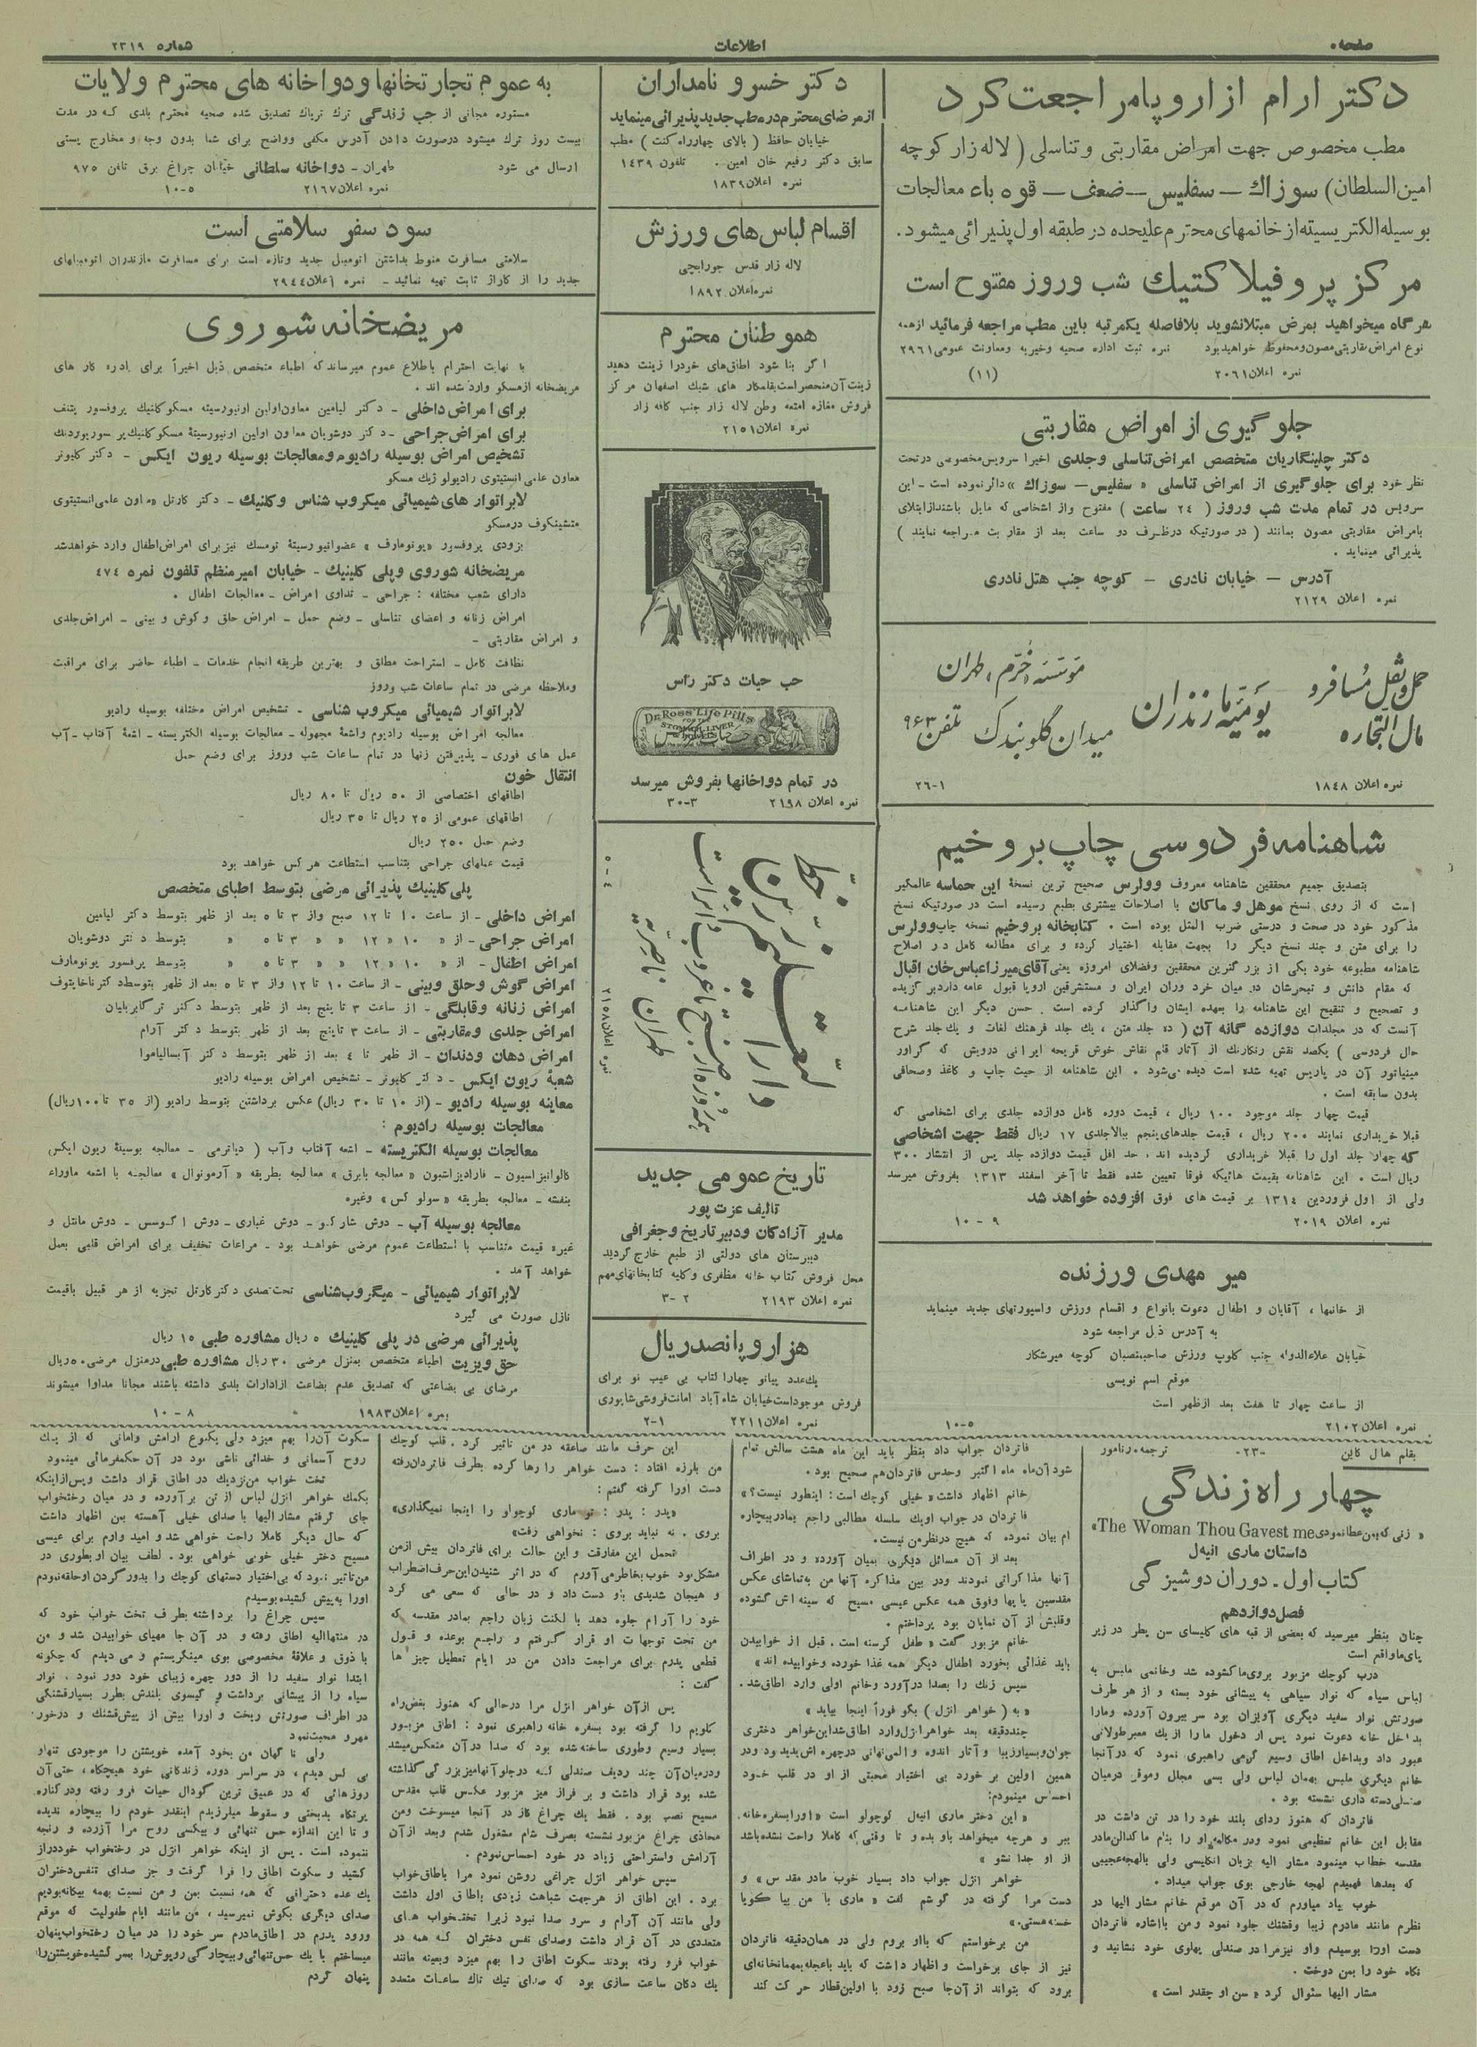 صفحه
اطلاعات
شماره ۲۳۱۹
دکتر ارام از اروپا مراجعت کرد
مطب مخصوص جهت امراض مقاربتی و تناسلی ( لاله زار کوچه
امین السلطان) سوزاك — سفلیس — ضعف — قوه باء معالجات
بوسیله الکتریسیته از خانمهای محترم علیحده در طبقه اول پذیرائی میشود .
مرکز پروفیلاکتیك شب وروز مفتوح است
هرگاه میخواهید بمرض مبتلا نشوید بلافاصله یکمرتبه باین مطب مراجعه فرمائید از همه
نوع امراض مقاربتی مصون و محفوظ خواهید بود نمره ثبت اداره صحیه و خیریه و معاونت عمومی ۲۹۶۱
نمره اعلان ۲۰۶۱ (۱۱)
جلوگیری از امراض مقاربتی
دکتر چلینگاریان متخصص امراض تناسلی وجلدی اخیرا سرویس مخصوصی در تحت
نظر خود برای جلوگیری از امراض تناسلی « سفلیس — سوزاك » دائر نموده است - این
سرویس در تمام مدت شب وروز ( ۲۴ ساعت ) مفتوح واز اشخاصی که مایل باشند از ابتلای
بامراض مقاربتی مصون بمانند ( در صورتیکه در ظرف دو ساعت بعد از مقاربت مراجعه نمایند )
پذیرائی مینماید .
آدرس — خیابان نادری — کوچه جنب هتل نادری
نمره اعلان ۲۱۲۹
حمل و نقل مسافر و
مال التجاره
یومیه مازندران
موسسه خرم ، طهران
میدان گلوبندك تلفن ۹۶۳
نمره اعلان ۱۸۴۸ ۱-۲۶
شاهنامه فردوسی چاپ بروخیم
بتصدیق جمیع محققین شاهنامه معروف وولرس صحیح ترین نسخهٔ این حماسه عالمگیر
است که از روی نسخ موهل و ماکان با اصلاحات بیشتری بطبع رسیده است در صورتیکه نسخ
مذکور خود در صحت و درستی ضرب المثل بوده است . کتابخانه بروخیم نسخه چاپ وولرس
را برای متن و چند نسخ دیگر را بجهت مقابله اختیار کرده و برای مطالعه کامل در اصلاح
شاهنامه مطبوعه خود یکی از بزرگترین محققین وفضلای امروزه یعنی آقای میرزا عباس خان اقبال
که مقام دانش و تبحرشان در میان خرد وران ایران و مستشرقین اروپا قبول عامه دارد برگزیده
و تصحیح و تنقیح این شاهنامه را بعهده ایشان واگذار کرده است . حسن دیگر این شاهنامه
آنست که در مجلدات دوازده گانه آن ( ده جلد متن ، یك جلد فرهنك لغات و یك جلد شرح
حال فردوسی ) یکصد نقش رنگارنك از آثار قلم نقاش خوش قریحه ایرانی درویش که گراور
مینیاتور آن در پاریس تهیه شده است دیده می شود . این شاهنامه از حیث چاپ و کاغذ وصحافی
بدون سابقه است .
قیمت چهار جلد موجود ۱۰۰ ریال ، قیمت دوره کامل دوازده جلدی برای اشخاصی که
قبلا خریداری نمایند ۲۰۰ ریال ، قیمت جلدهای پنجم ببالا جلدی ۱۷ ریال فقط جهت اشخاصی
که چهار جلد اول را قبلا خریداری کرده اند ، حد اقل قیمت دوازده جلد پس از انتشار ۳۰۰
ریال است . این شاهنامه بقیمت هائیکه فوقا تعیین شده فقط تا آخر اسفند ۱۳۱۳ بفروش میرسد
ولی از اول فروردین ۱۳۱۴ بر قیمت های فوق افزوده خواهد شد
نمره اعلان ۲۰۱۹ ۹ - ۱۰
میر مهدی ورزنده
از خانمها ، آقایان و اطفال دعوت بانواع و اقسام ورزش واسپورتهای جدید مینماید
به آدرس ذیل مراجعه شود
خیابان علاءالدوله جنب کلوپ ورزش صاحبمنصبان کوچه میرشکار
موقع اسم نویسی
از ساعت چهار تا هفت بعد ازظهر است
نمره اعلان ۲۱۰۲ ۵-۱۰
دکتر خسرو نامداران
از مرضای محترم در مطب جدید پذیرائی مینماید
خیابان حافظ ( بالای چهارراه کنت ) مطب
سابق دکتر رفیع خان امین . تلفون ۱۴۳۹
نمره اعلان ۱۸۳۹
اقسام لباس های ورزش
لاله زار قدس جورابچی
نمره اعلان ۱۸۹۲
هموطنان محترم
اگر بنا شود اطاق‌های خود را زینت دهید
زینت آن منحصر است بقلمکار های شیك اصفهان مرکز
فروش مغازه امتعه وطن لاله زار جنب کافه زار
نمره اعلان ۲۱۵۱
حب حیات دکتر راس
Dr. Ross' Life Pills
FOR THE
STOMACH LIVER
& BOWELS
در تمام دواخانها بفروش میرسد
نمره اعلان ۲۱۹۸ ۳-۳۰
۴-۵
نمره اعلان ۲۱۵۸
تاریخ عمومی جدید
تالیف عزت پور
مدیر آزادگان و دبیر تاریخ و جغرافی
دبیرستان های دولتی از طبع خارج گردید
محل فروش کتاب خانه مظفری وکلیه کتابخانهای مهم
نمره اعلان ۲۱۹۳ ۲-۳
هزار و پانصد ریال
یك‌عدد پیانو چهار اکتاب بی عیب نو برای
فروش موجود است خیابان شاه آباد امانت فروشی شاپوری
نمره اعلان ۲۲۱۱ ۱-۲
به عموم تجارتخانها ودواخانه های محترم ولایات
مستوره مجانی از حب زندگی ترك تریاك تصدیق شده صحیه محترم بلدی که در مدت
بیست روز ترك میشود درصورت دادن آدرس مکفی وواضح برای شما بدون وجه و مخارج پستی
ارسال می شود طهران - دواخانه سلطانی خیابان چراغ برق تلفن ۹۷۵
نمره اعلان ۲۱۶۷ ۵-۱۰
سود سفر سلامتی است
سلامتی مسافرت منوط بداشتن اتومبیل جدید وتازه است برای مسافرت مازندران اتومبیلهای
جدید را از گاراژ ثابت تهیه نمائید - نمره اعلان ۲۹۴۴
مریضخانه شوروی
با نهایت احترام باطلاع عموم میرساند که اطباء متخصص ذیل اخیراً برای اداره کار های
مریضخانه از مسکو وارد شده اند .
برای امراض داخلی - دکتر لیامین معاون اولین اونیورسیته مسکو کلنیك پروفسور پلتنف
برای امراض جراحی - دکتر دوشویان معاون اولین اونیورسیتهٔ مسکو کلنیك پرسور بوردنك
تشخیص امراض بوسیله رادیوم ومعالجات بوسیله ریون ایکس - دکتر کلپونر
معاون علمی انستیتوی رادیولو ژیك مسکو
لابراتوار های شیمیائی میکروب شناس و کلنیك - دکتر کارتل معاون علمی انستیتوی
متشینکوف در مسکو
بزودی پروفسور «یونومارف» عضو انیورسیتهٔ تومسك نیز برای امراض اطفال وارد خواهد شد
مریضخانه شوروی وپلی کلینیك - خیابان امیر منظم تلفون نمره ۴۷۴
دارای شعب مختلفه : جراحی - تداوی امراض - معالجات اطفال .
امراض زنانه و اعضای تناسلی - وضع حمل - امراض حلق و گوش و بینی - امراض جلدی
و امراض مقاربتی -
نظافت کامل - استراحت مطلق و بهترین طریقه انجام خدمات - اطباء حاضر برای مراقبت
وملاحظه مرضی در تمام ساعات شب وروز
لابراتوار شیمیائی میکروب شناسی - تشخیص امراض مختلفه بوسیله رادیو
معالجه امراض بوسیله رادیوم واشعهٔ مجهوله - معالجات بوسیله الکتریسته - اشعهٔ آفتاب - آب
عمل های فوری - پذیرفتن زنها در تمام ساعات شب وروز برای وضع حمل
انتقال خون
اطاقهای اختصاصی از ۵۰ ریال تا ۸۰ ریال
اطاقهای عمومی از ۲۵ ریال تا ۳۵ ریال
وضع حمل ۲۵۰ ریال
قیمت عملهای جراحی بتناسب استطاعت هر کس خواهد بود
پلی کلینیك پذیرائی مرضی بتوسط اطبای متخصص
امراض داخلی - از ساعت ۱۰ تا ۱۲ صبح واز ۳ تا ۵ بعد از ظهر بتوسط دکتر لیامین
امراض جراحی - از « ۱۰ « ۱۲ « « ۳ تا ۵ « « بتوسط دکتر دوشویان
امراض اطفال - از « ۱۰ « ۱۲ « « ۳ تا ۵ « « بتوسط پرفسور یونومارف
امراض گوش وحلق وبینی - از ساعت ۱۰ تا ۱۲ واز ۳ تا ۵ بعد از ظهر بتوسط دکتر ناخایتوف
امراض زنانه وقابلگی - از ساعت ۳ تا پنج بعد از ظهر بتوسط دکتر ترگابریلیان
امراض جلدی ومقاربتی - از ساعت ۳ تا پنج بعد از ظهر بتوسط دکتر آرام
امراض دهان ودندان - از ظهر تا ۴ بعد از ظهر بتوسط دکتر آبسالیاموا
شعبهٔ ریون ایکس - دکتر کلپونر - تشخیص امراض بوسیله رادیو
معاینه بوسیله رادیو - (از ۱۰ تا ۳۰ ریال) عکس برداشتن بتوسط رادیو (از ۳۵ تا ۱۰۰ ریال)
معالجات بوسیله رادیوم :
معالجات بوسیله الکتریسته - اشعه آفتاب وآب ( دیاترمی - معالجه بوسیلهٔ ریون ایکس
گالوانیزاسیون - فارادیزاسیون « معالجه بابرق » معالجه بطریقه « آرسونوال » معالجه با اشعه ماوراء
بنفشه - معالجه بطریقه « سولو کس » وغیره
معالجه بوسیله آب - دوش شارکو - دوش غباری - دوش اکوسس - دوش مانتل و
غیره قیمت متناسب با استطاعت عموم مرضی خواهد بود - مراعات تخفیف برای امراض قلبی بعمل
خواهد آمد .
لابراتوار شیمیائی - میگروب شناسی تحت تصدی دکتر کارتل تجزیه از هر قبیل باقیمت
نازل صورت می گیرد
پذیرائی مرضی در پلی کلینیك ۵ ریال مشاوره طبی ۱۵ ریال
حق ویزیت اطباء متخصص بمنزل مرضی ۳۰ ریال مشاوره طبی درمنزل مرضی ۵۰ ریال
مرضای بی بضاعتی که تصدیق عدم بضاعت از ادارات بلدی داشته باشند مجانا مداوا میشوند
نمره اعلان ۱۹۸۳ ۸ - ۱۰
بقلم هال کاین -۲۳- ترجمه رنامور
چهار راه زندگی
« زنی که بمن عطا نمودی The Woman Thou Gavest me»
داستان ماری انیه ل
کتاب اول - دوران دوشیزگی
فصل دوازدهم
چنان بنظر میرسید که بعضی از قبه های کلیسای سن پطر در زیر
پای ما واقع است
درب کوچك مزبور بروی ما گشوده شد وخانمی ملبس به
لباس سیاه که نوار سیاهی به پیشانی خود بسته و از هر طرف
صورتش نوار سفید دیگری آویزان بود سر بیرون آورده ومارا
بداخل خانه دعوت نمود پس از دخول ما را از یك ممبر طولانی
عبور داد وبداخل اطاق وسیع گرمی راهبری نمود که در آنجا
خانم دیگری ملبس بهمان لباس ولی بسی مجلل وموقر درمیان
صندلی دسته داری نشسته بود .
فاتردان که هنوز ردای بلند خود را در تن داشت در
مقابل این خانم تعظیمی نمود ودر مکالمه او را بنام ماگدالن مادر
مقدسه خطاب مینمود مشار الیه بزبان انگلیسی ولی بالهجه عجیبی
که بعدها فهمیدم لهجه خارجی بوی جواب میداد .
خوب بیاد میاورم که در آن موقع خانم مشار الیها در
نظرم مانند مادرم زیبا وقشنك جلوه نمود و من باشاره فاتردان
دست اورا بوسیدم واو نیزمرا در صندلی پهلوی خود نشانید و
نگاه خود را بمن دوخت .
مشار الیها سئوال کرد « سن او چقدر است »
فاتردان جواب داد بنظر باید این ماه هشت سالش تمام
شود آن‌ماه ماه اکتبر وحدس فاتردان هم صحیح بود .
خانم اظهار داشت « خیلی کوچك است : اینطور نیست؟ »
فاتردان در جواب او یك سلسله مطالبی راجع بمادر بیچاره
ام بیان نموده که هیچ در نظر من نیست.
بعد از آن مسائل دیگری بمیان آورده و در اطراف
آنها مذاکراتی نمودند ودر بین مذاکره آنها من به تماشای عکس
مقدسین پا پها وفوق همه عکس عیسی مسیح که سینه اش گشوده
وقلبش از آن نمایان بود پرداختم .
خانم مزبور گفت « طفل گرسنه است . قبل از خوابیدن
باید غذائی بخورد اطفال دیگر همه غذا خورده وخوابیده اند »
سپس زنك را بصدا درآورد وخانم اولی وارد اطاق شد .
« به ( خواهر انژل ) بگو فوراً اینجا بیاید »
چند دقیقه بعد خواهر انژل وارد اطاق شد این خواهر دختری
جوان وبسیار زیبا و آثار اندوه و الم پنهانی درچهره اش پدید بود ودر
همین اولین بر خورد بی اختیار محبتی از او در قلب خود
احساس مینمودم:
« این دختر ماری انیه‌ل کوچولو است « اورا بسفره خانه
ببر و هرچه میخواهد باو بده و تا وقتی که کاملا راحت نشده باشد
از او جدا نشو »
خواهر انژل جواب داد بسیار خوب مادر مقدس » و
دست مرا گرفته در گوشم گفت « ماری با من بیا گویا
خسته هستی.»
من برخواستم که بااو بروم ولی در همان دقیقه فاتردان
نیز از جای برخواست و اظهار داشت که باید باعجله بمهمانخانه‌ای
برود که بتواند از آن‌جا صبح زود با اولین قطار حرکت کند
این حرف مانند صاعقه در من تاثیر کرد . قلب کوچك
من بلرزه افتاد : دست خواهر را رها کرده بطرف فاتردان رفته
دست اورا گرفته گفتم :
«پدر : پدر : تو ماری کوچولو را اینجا نمیگذاری»
بروی . نه نباید بروی : نخواهی رفت»
تحمل این مفارقت و این حالت برای فاتردان بیش ازمن
مشکل‌بود خوب بخاطر می‌آورم که در اثر شنیدن این حرف اضطراب
و هیجان شدیدی باو دست داد و در حالی که سعی می کرد
خود را آرام جلوه دهد با لکنت زبان راجع بمادر مقدسه که
من تحت توجهات او قرار گرفتم و راجع بوعده و قول
قطعی پدرم برای مراجعت دادن من در ایام تعطیل چیز ها
گفت :
پس ازآن خواهر انژل مرا درحالی که هنوز بغض راه
گلویم را گرفته بود بسفره خانه راهبری نمود : اطاق مزبور
بسیار وسیع وطوری ساخته شده بود که صدا در آن منعکس میشد
ودرمیان آن چند ردیف صندلی که در جلو آنها میز بزرگی گذاشته
شده بود قرار داشت و بر فراز میز مزبور عکس قلب مقدس
مسیح نصب بود . فقط یك چراغ گاز در آنجا میسوخت ومن
محاذی چراغ مزبور نشسته بصرف شام مشغول شدم وبعد از آن
آرامش واستراحتی زیاد در خود احساس نمودم .
سپس خواهر انژل چراغی روشن نمود مرا باطاق خواب
برد . این اطاق از هرجهت شباهت زیادی باطاق اول داشت
ولی مانند آن آرام و سرو صدا نبود زیرا تختخواب های
متعددی در آن قرار داشت وصدای نفس دختران که همه در
خواب فرو رفته بودند سکوت اطاق را بهم میزد وبعینه مانند
یك دکان ساعت سازی بود که صدای تیك تاك ساعات متعدد
سکوت آن را بهم میزد ولی یکنوع آرامش وامانی که از یك
روح آسمانی و خدائی ناشی بود در آن حکمفرمائی مینمود
تخت خواب من نزدیك در اطاق قرار داشت وپس ازاینکه
بکمك خواهر انژل لباس از تن بر آورده و در میان رختخواب
جای گرفتم مشار الیها با صدای خیلی آهسته بمن اظهار داشت
که حال دیگر کاملا راحت خواهی شد و امید وارم برای عیسی
مسیح دختر خیلی خوبی خواهی بود . لطف بیان او بطوری در
من تاثیر نمود که بی‌اختیار دستهای کوچك را بدور گردن او حلقه نمودم
اورا به پیش کشیده بوسیدم
سپس چراغ را برداشته بطرف تخت خواب خود که
در منتها الیه اطاق رفته و در آن جا مهیای خوابیدن شد و من
با ذوق و علاقهٔ مخصوصی بوی مینگریستم و می دیدم که چگونه
ابتدا نوار سفید را از دور چهره زیبای خود دور نمود . نوار
سیاه را از پیشانی برداشت و گیسوی بلندش بطرز بسیار قشنگی
در اطراف صورتش ریخت و اورا بیش از پیش قشنك و درخور
مهرو محبت نمود
ولی نا گهان من بخود آمده خویشتن را موجودی تنها و
بی کس دیدم ، در سراسر دوره زندگانی خود هیچگاه ، حتی آن
روزهائی که در عمیق ترین گودال حیات فرو رفته ودر کناره
پرتگاه بدبختی و سقوط میلرزیدم اینقدر خودم را بیچاره ندیده
و تا این اندازه حس تنهائی و بیکسی روح مرا آزرده و رنجه
ننموده است . پس از اینکه خواهر انژل در رختخواب خود دراز
کشید و سکوت اطاق را فرا گرفت و جز صدای تنفس دختران
یك عده دخترانی که همه نسبت بمن و من نسبت بهمه بیگانه بودیم
صدای دیگری بگوش نمیرسید ، من مانند ایام طفولیت که موقع
ورود پدرم در اطاق مادرم سر خود را در میان رختخواب پنهان
میساختم با یك حس تنهائی و بیچارگی روپوش را بسر کشیده خویشتن را
پنهان کردم